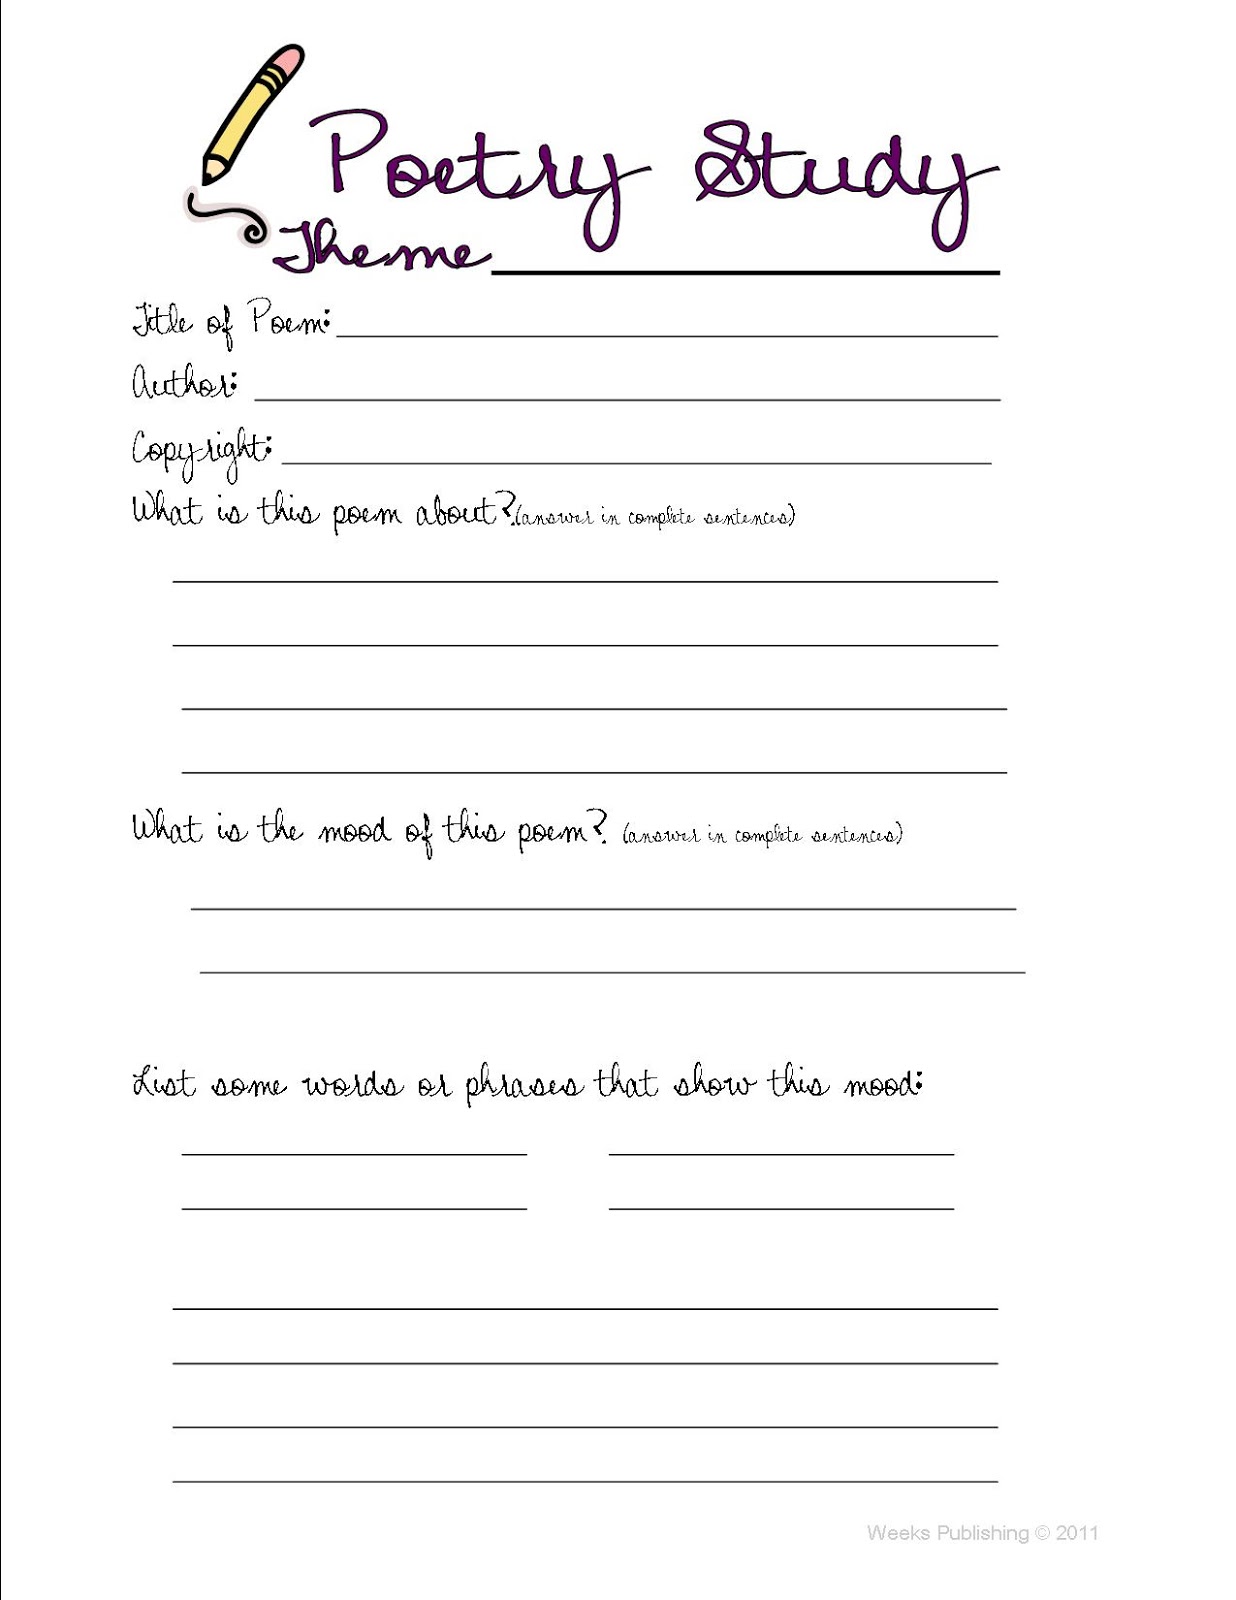 Poetry Study
Theme
Title of Poem:
Author:
Copyright:
What is this poem about? (answer in complete sentences)
What is the mood of this poem? (answer in complete sentences)
List some words or phrases that show this mood:
Weeks Publishing © 2011